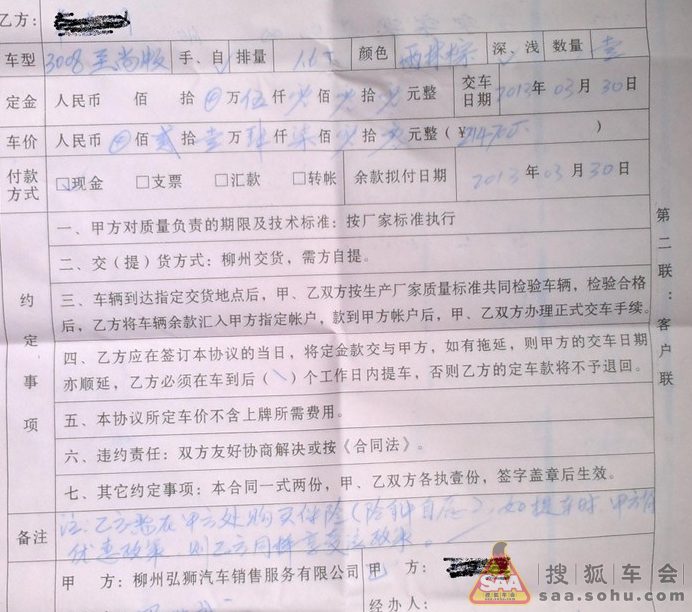 乙方：
车型 3008至尚版 手、自 √ 排量 1.6T 颜色 深、浅 数量 壹
定金 人民币 佰 拾 万 伍 仟 零 佰 零 拾 零 元整 交车日期 2013年03月30日
车价 人民币 佰 贰 拾 壹 万 肆 仟 柒 佰 零 拾 零 元整 (¥214700. )
付款方式 ☑现金 □支票 □汇款 □转帐 余款拟付日期 2013年03月30日
约定事项
一、甲方对质量负责的期限及技术标准：按厂家标准执行
二、交（提）货方式：柳州交货，需方自提。
三、车辆到达指定交货地点后，甲、乙双方按生产厂家质量标准共同检验车辆，检验合格
后，乙方将车辆余款汇入甲方指定帐户，款到甲方帐户后，甲、乙双方办理正式交车手续。
四、乙方应在签订本协议的当日，将定金款交与甲方，如有拖延，则甲方的交车日期
亦顺延，乙方必须在车到后（ ）个工作日内提车，否则乙方的定车款将不予退回。
五、本协议所定车价不含上牌所需费用。
六、违约责任：双方友好协商解决或按《合同法》。
七、其它约定事项：本合同一式两份，甲、乙双方各执壹份，签字盖章后生效。
备注 注：乙方需在甲方处购买保险（险种自定）；如提车时甲方有
优惠政策，则乙方同样享受该政策。
甲 方：柳州弘狮汽车销售服务有限公司 乙 方：
经办人：
第二联：客户联
搜狐车会
saa.sohu.com
SAA
搜狐车会